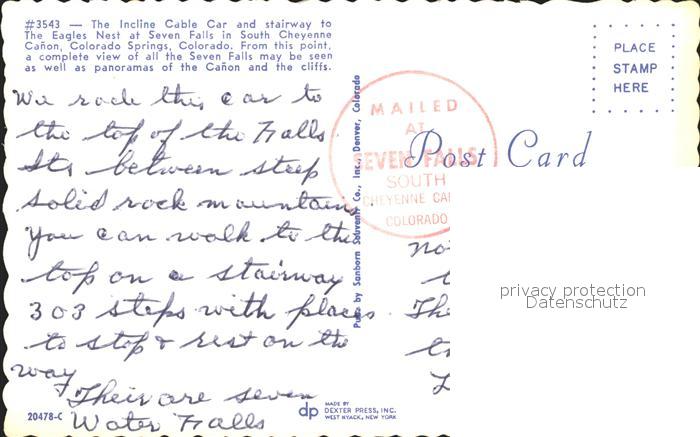 #3543 — The Incline Cable Car and stairway to
The Eagles Nest at Seven Falls in South Cheyenne
Cañon, Colorado Springs, Colorado. From this point,
a complete view of all the Seven Falls may be seen
as well as panoramas of the Cañon and the cliffs.
We rode this car to
the top of the Falls
Its between steep
solid rock mountains
You can walk to the
top on a stairway
303 steps with places
to stop & rest on the
way
Their are seven
Water Falls
20478-C
dp
MADE BY
DEXTER PRESS, INC.
WEST NYACK, NEW YORK
Pub. by Sanborn Souvenir Co., Inc., Denver, Colorado
MAILED
AT
SEVEN FALLS
SOUTH
CHEYENNE CA
COLORADO
Post Card
PLACE
STAMP
HERE
The
privacy protection
Datenschutz